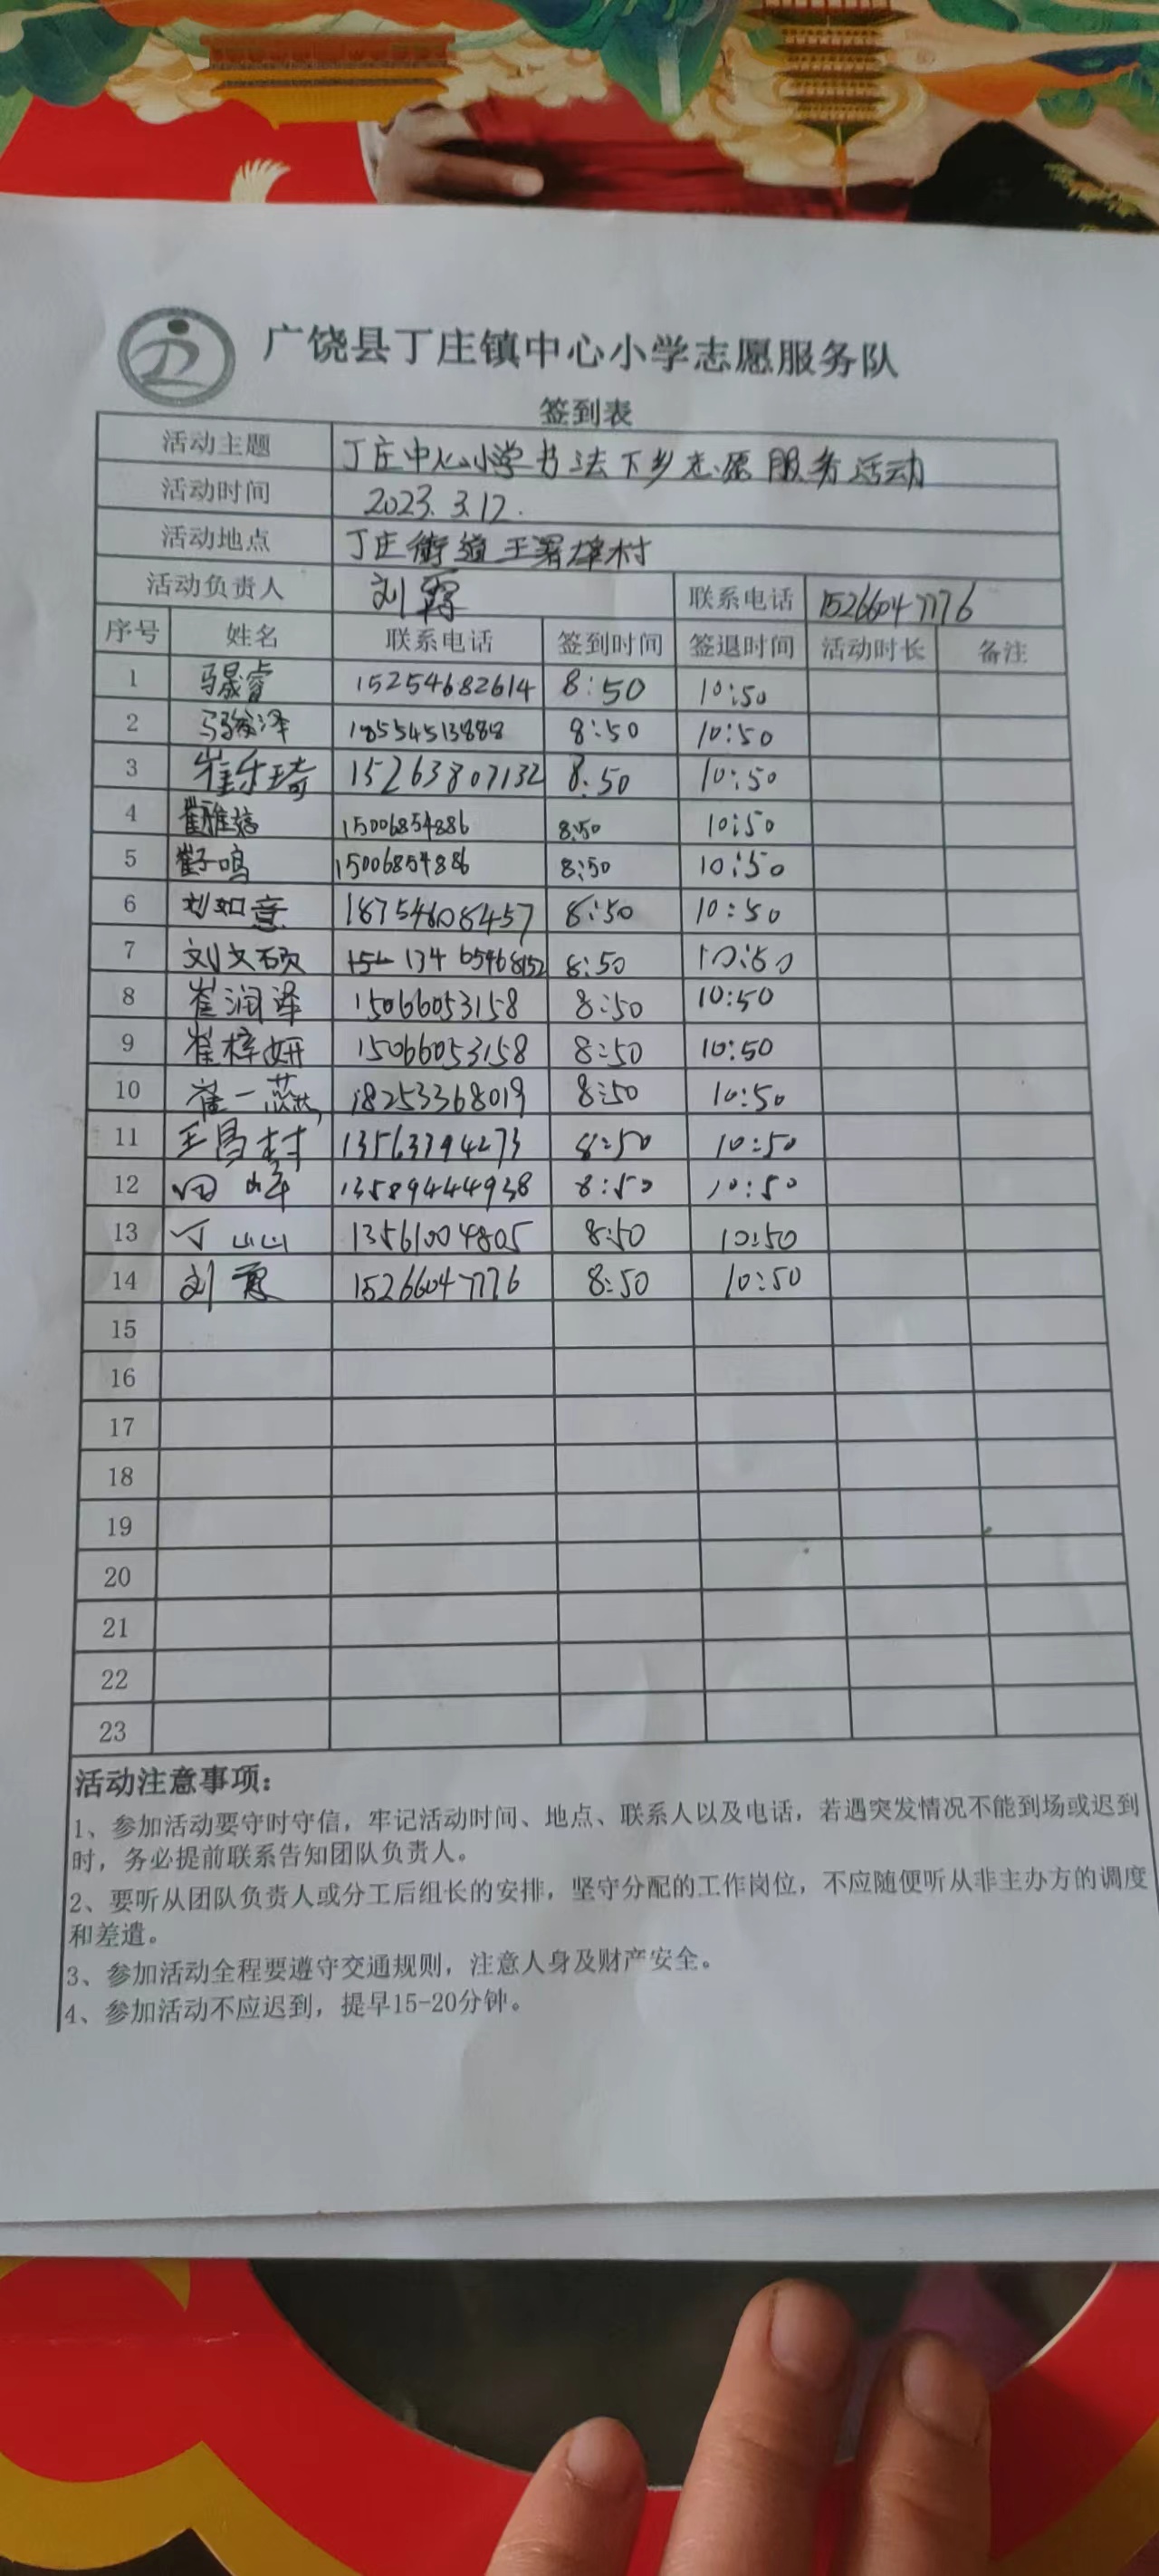 广饶县丁庄镇中心小学志愿服务队
签到表
活动主题 丁庄中心小学书法下乡志愿服务活动
活动时间 2023.3.12.
活动地点 丁庄街道王署埠村
活动负责人 刘霞 联系电话 15266047776
序号 姓名 联系电话 签到时间 签退时间 活动时长 备注
1 马晟睿 15254682614 8:50 10:50
2 马骏泽 18554513888 8:50 10:50
3 崔乐琦 15263807132 8:50 10:50
4 崔雅婷 15006854886 8:50 10:50
5 崔子鸣 15006854886 8:50 10:50
6 刘如意 18754608457 8:50 10:50
7 刘文硕 134 65468152 8:50 10:50
8 崔润泽 15066053158 8:50 10:50
9 崔梓妍 15066053158 8:50 10:50
10 崔一蕊 18253368019 8:50 10:50
11 王昌村 13563394273 8:50 10:50
12 田峰 13589444938 8:50 10:50
13 丁山山 13561004805 8:50 10:50
14 刘霞 15266047776 8:50 10:50
15
16
17
18
19
20
21
22
23
活动注意事项:
1、参加活动要守时守信，牢记活动时间、地点、联系人以及电话，若遇突发情况不能到场或迟到
时，务必提前联系告知团队负责人。
2、要听从团队负责人或分工后组长的安排，坚守分配的工作岗位，不应随便听从非主办方的调度
和差遣。
3、参加活动全程要遵守交通规则，注意人身及财产安全。
4、参加活动不应迟到，提早15-20分钟。